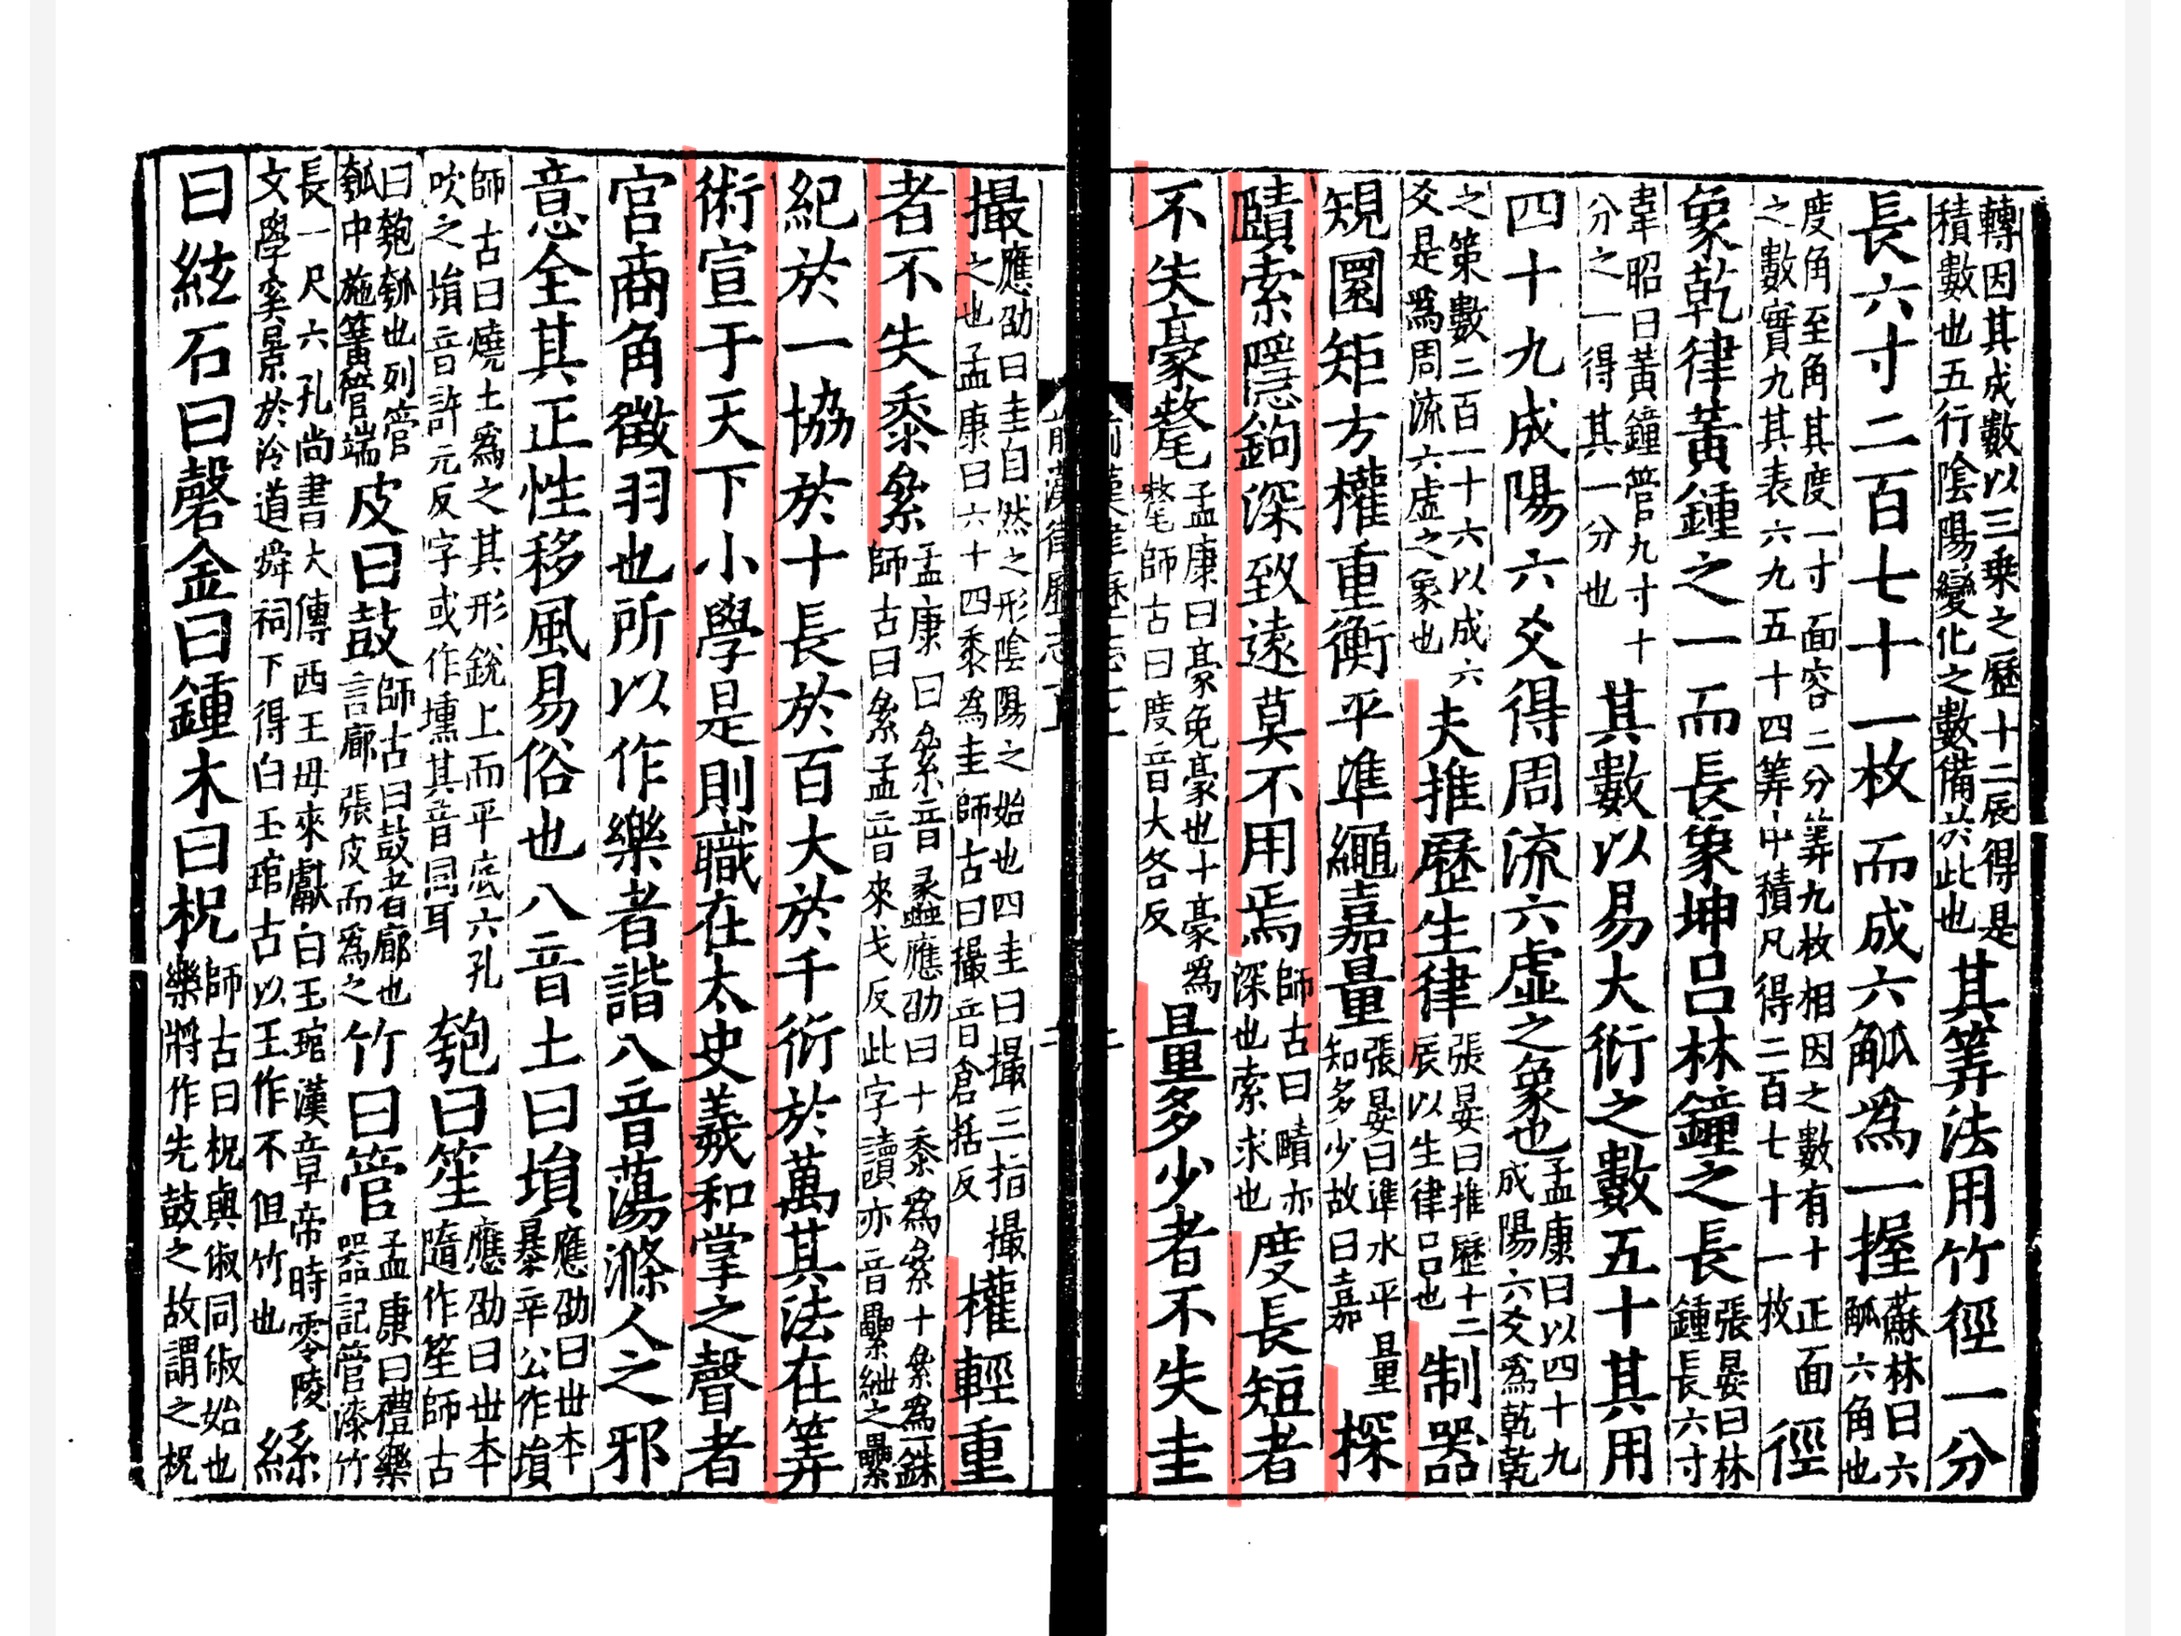 轉因其成數以三乗之歷十二辰得是
積數也五行陰陽變化之數備於此也
其筭法用竹徑一分
長六寸二百七十一枚而成六觚爲一握
蘇林曰六
觚六角也
度角至角其度一寸面容二分筭九枚相因之數有十正面
之數實九其表六九五十四筭中積凡得二百七十一枚
徑
象乾律黃鍾之一而長象坤呂林鐘之長
張晏曰林
鍾長六寸
韋昭曰黃鐘管九寸十
分之一得其一分也
其數以易大衍之數五十其用
四十九成陽六爻得周流六虛之象也
孟康曰以四十九
成陽六爻爲乾乾
之策數二百一十六以成六
爻是爲周流六虛之象也
夫推歷生律
張晏曰推歷十二
辰以生律呂也
制器
規圜矩方權重衡平準繩嘉量
張晏曰準水平量
知多少故曰嘉
探
賾索隱鉤深致遠莫不用焉
師古曰賾亦
深也索求也
度長短者
不失豪氂
孟康曰豪兔豪也十豪爲
氂師古曰度音大各反
量多少者不失圭
前漢律歷志上
二
撮
應劭曰圭自然之形陰陽之始也四圭曰撮三指撮
之也孟康曰六十四黍為圭師古曰撮音倉括反
權輕重
者不失黍絫
孟康曰絫音蠡應劭曰十黍爲絫十絫爲銖
師古曰絫孟音來戈反此字讀亦音纍紲之纍
紀於一協於十長於百大於千衍於萬其法在筭
術宣于天下小學是則職在太史羲和掌之聲者
宮商角徵羽也所以作樂者諧八音蕩滌人之邪
意全其正性移風易俗也八音土曰塤
應劭曰世本
暴辛公作塤
師古曰燒土爲之其形銳上而平底六孔
吹之塤音許元反字或作壎其音同耳
匏曰笙
應劭曰世本
隨作笙師古
曰匏瓠也列管
瓠中施簧管端
皮曰鼓
師古曰鼓者廓也
言廓張皮而爲之
竹曰管
孟康曰禮樂
器記管漆竹
長一尺六孔尚書大傳西王母來獻白玉琯漢章帝時零陵
文學奚景於泠道舜祠下得白玉琯古以玉作不但竹也
絲
曰絃石曰磬金曰鍾木曰柷
師古曰柷與俶同俶始也
樂將作先鼓之故謂之柷